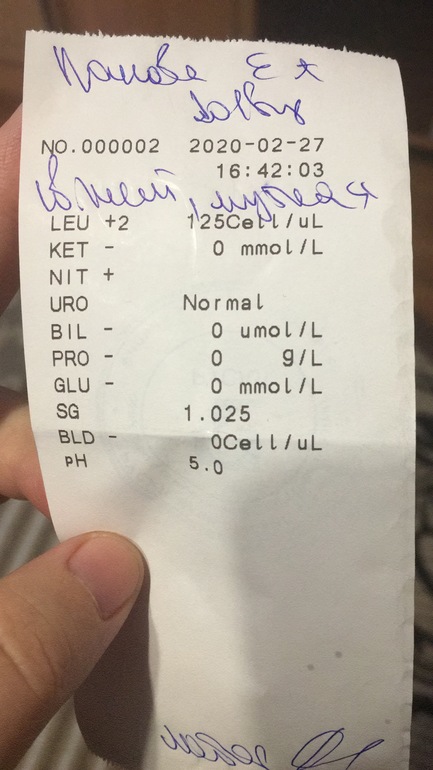 NO.000002 2020-02-27
16:42:03
с/жёлт, мутная
LEU +2 125Cell/uL
KET - 0 mmol/L
NIT +
URO Normal
BIL - 0 umol/L
PRO - 0 g/L
GLU - 0 mmol/L
SG 1.025
BLD - 0Cell/uL
pH 5.0